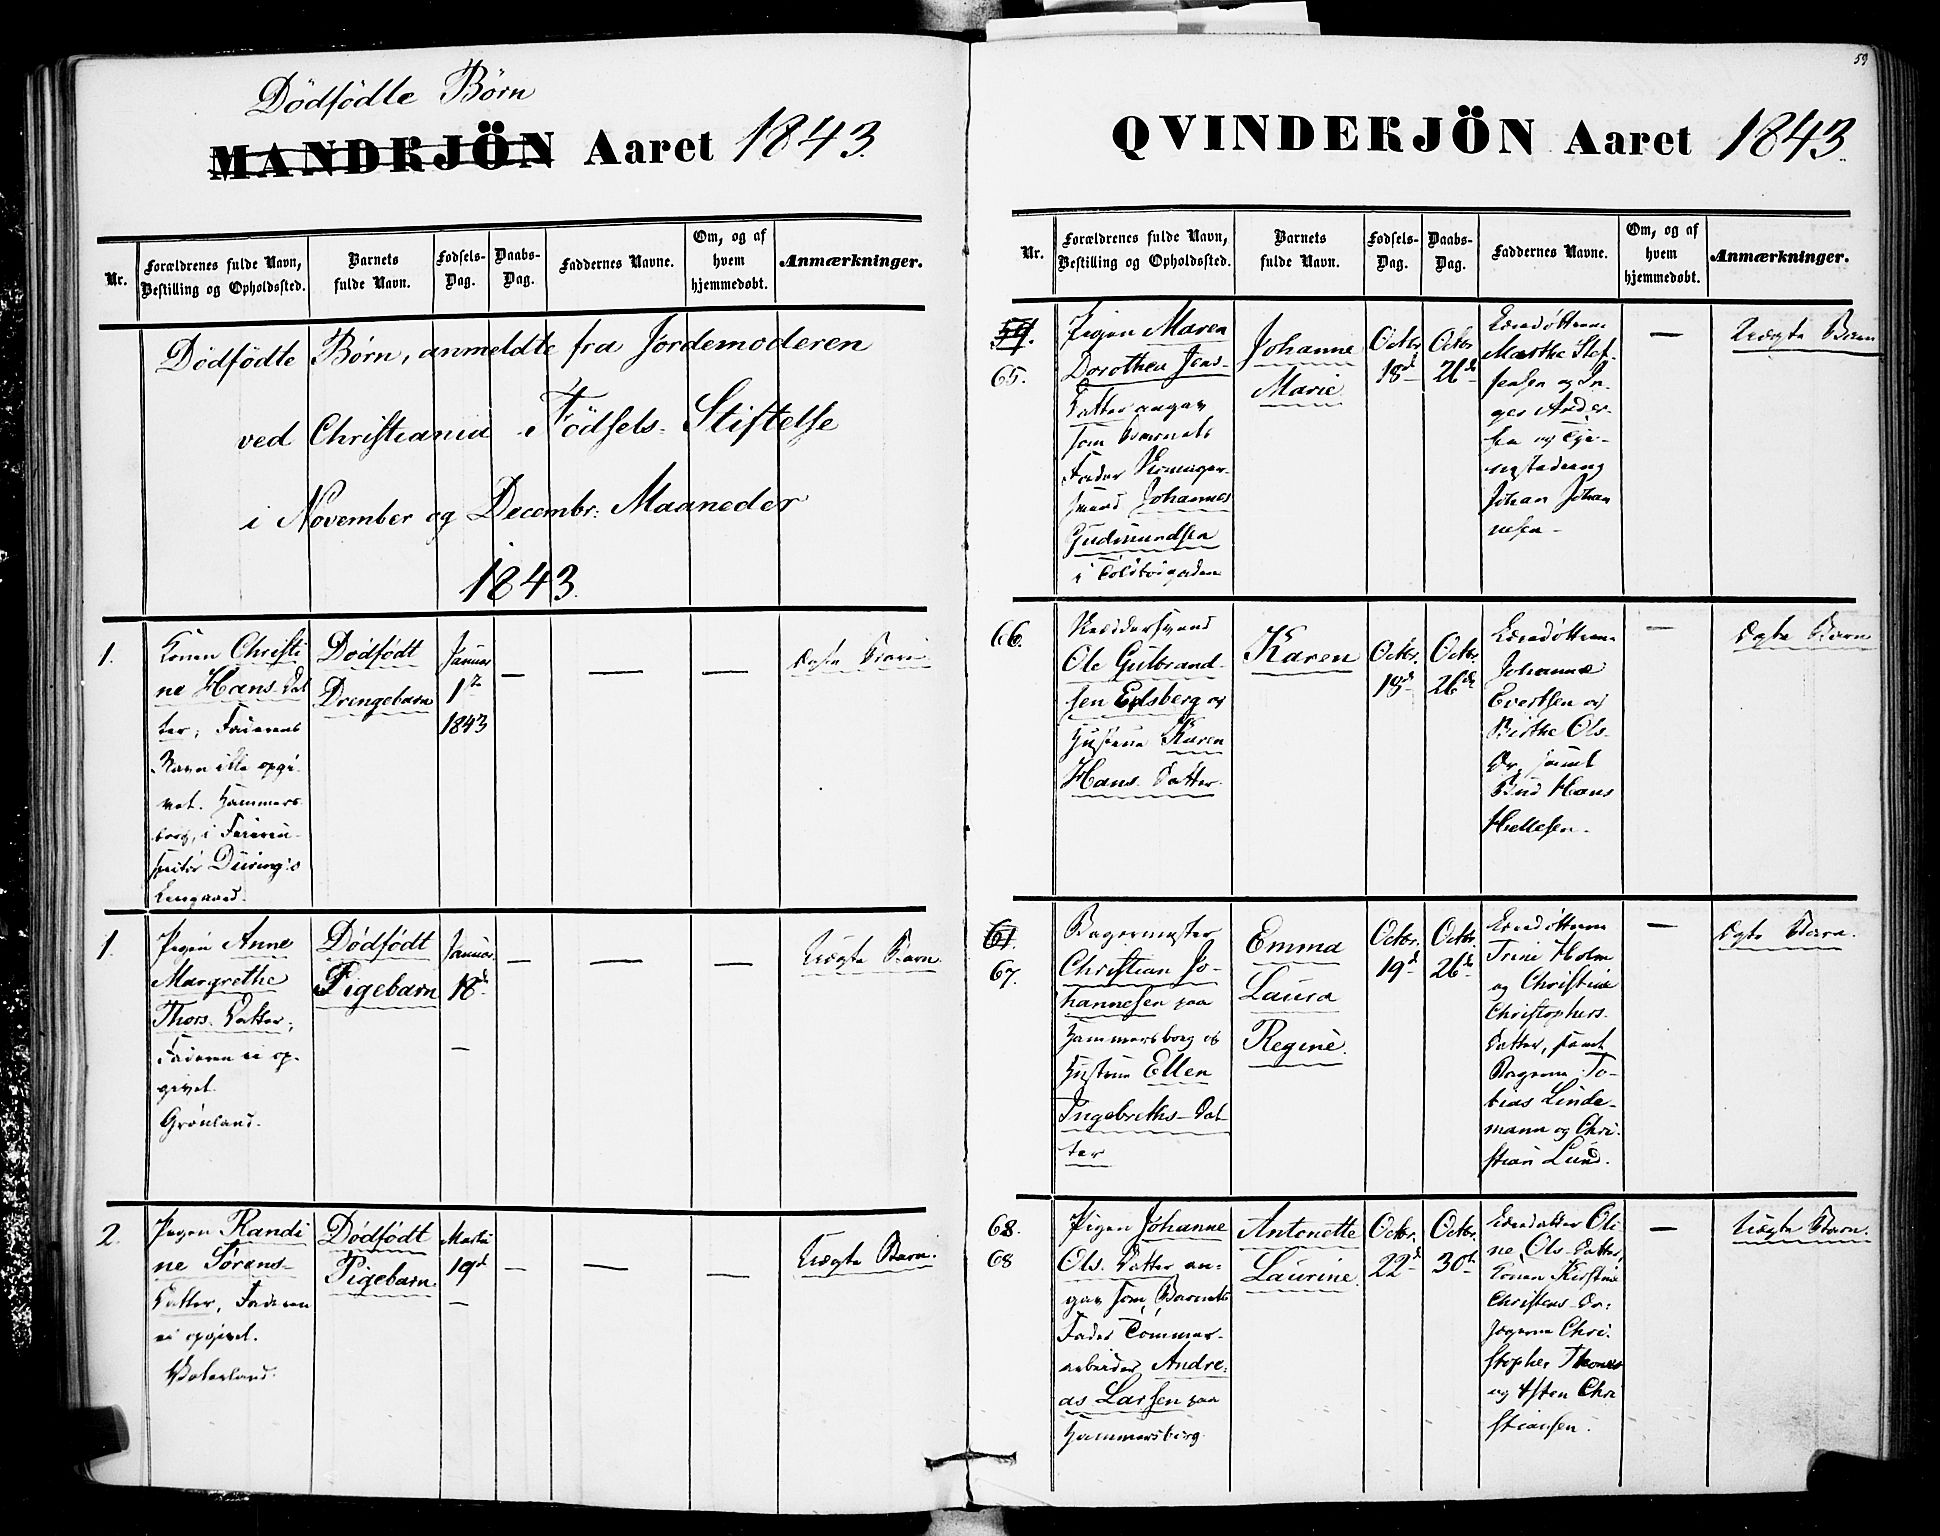 Dödfödte Børn
MANDKJÖN Aaret 1843.
Nr.
Forældrenes fulde Navn,
Bestilling og Opholdssted.
Barnets
fulde Navn.
Fodsels-
Dag.
Daabs-
Dag.
Faddernes Navne.
Om, og af
hvem
hjemmedøbt.
Anmærkninger.
Dödfödte Børn, anmeldte fra Jordemoderen
ved Christiania Födsels-Stiftelse
i November og Decembr: Maaneder
1843.
1.
Konen Christi
ne Hans-Dat
ter, Faderens
Navn ikke opgi-
vet. Hammers
borg, i
Düring's
Dödfödt
Drengebarn
Januar
1
1843
—
—
—
Ægte Barn
1.
Pigen Anne
Margrethe
Thors-Datter,
Faderen ei op-
givet.
Grønland.
Dödfödt
Pigebarn
Januar
18d
—
—
—
—
Uægte Barn
2.
Pigen Randi
ne Sørens-
Datter, Faderen
ei opgivet.
Vaterland.
Dödfödt
Pigebarn.
Martii
19d
—
—
—
—
Uægte Barn.
59
QVINDEKJÖN Aaret 1843.
Nr.
Forældrenes fulde Navn,
Bestilling og Opholdssted.
Barnets
fulde Navn.
Fodsels-
Dag.
Daabs-
Dag.
Faddernes Navne.
Om, og af
hvem
hjemmedøbt.
Anmærkninger.
59.
65.
Pigen Maren
Dorothea Jens-
Datter angav
som Barnets
Fader
Johannes
Gudmundsen
i Toldbodgaden
Johanne
Marie
Octbr
18d
Octbr
26d
Marthe Stef-
fensen og In-
ger Ander-
sen og Tje-
Johan Johan
nesen-
—
Uægte Barn
66.
Ole Gulbrand-
sen Eidsberg og
Hustrue Karen
Hans-Datter.
Karen
Octbr.
18d
Octbr.
26d
Johanne
Evertsen og
Birthe Ols-
Dr, samt
Bud Hans
Hellesen.
—
Ægte Barn
61.
67.
Bagermester
Christian Jo-
hannesen paa
Hammersborg og
Hustrue Ellen
Ingebreths-Dat
ter
Emma
Laura
Regine.
Octbr.
19d
Octbr.
26d
Trine Holm
og Christine
Christophers-
Datter, samt
Bagerne To-
bias Linde-
mann og Chri-
stian Lund.
—
Ægte Barn.
68.
68
Pigen Johanne
Ols-Datter an-
gav som Barnets
Fader Tømmer-
arbeider Andre-
as Larsen paa
Hammersborg.
Antonette
Laurine.
Octbr.
22d
Octbr.
30d
Oli
ne Ols-Datter,
Konen Kirstine
Christens-Dr.
Jægerne Chri-
stopher Thones
og Chri
stiansen.
—
Uægte Barn.